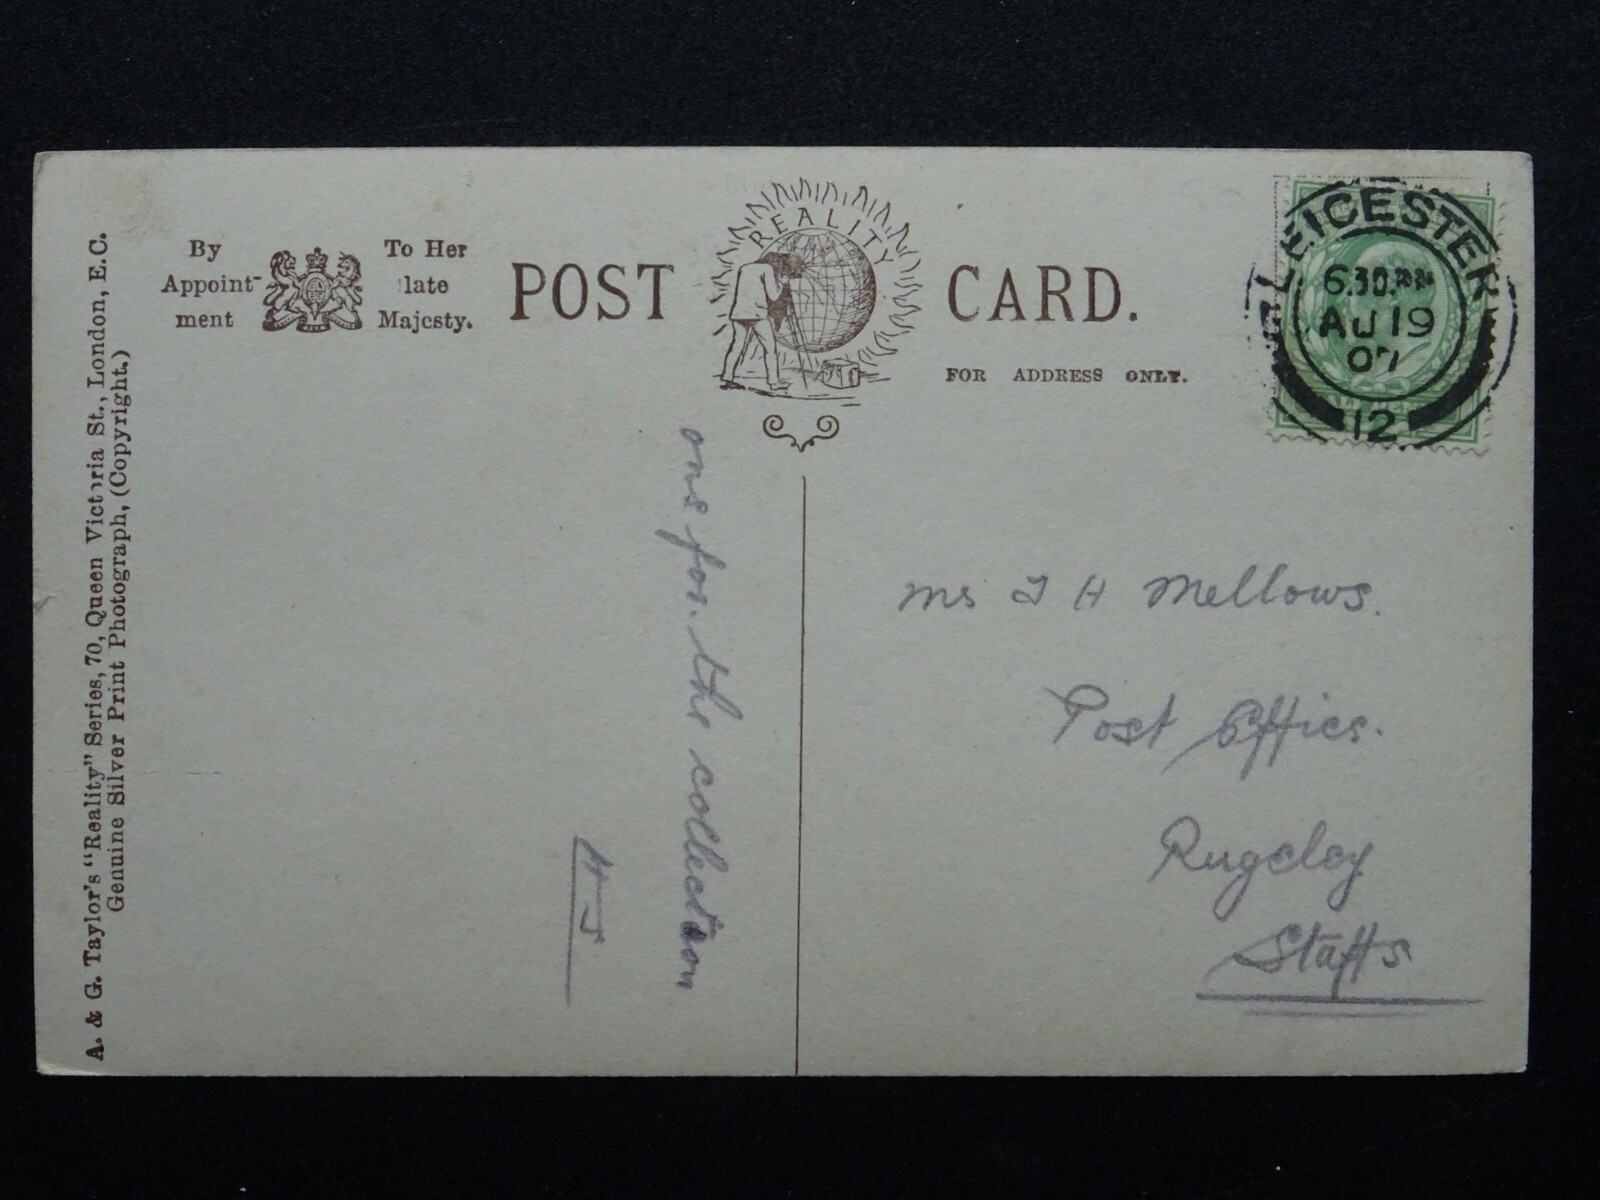 A. & G. Taylor's "Reality" Series, 70, Queen Victoria St., London, E.C.
Genuine Silver Print Photograph, (Copyright.)
By
Appoint-
ment
To Her
late
Majesty.
POST CARD.
REALITY
FOR ADDRESS ONLY.
LEICESTER
6.30.PM
AU 19
07
12
one for. the collection
H J
Ms J H Mellows.
Post Office.
Rugeley
Staffs